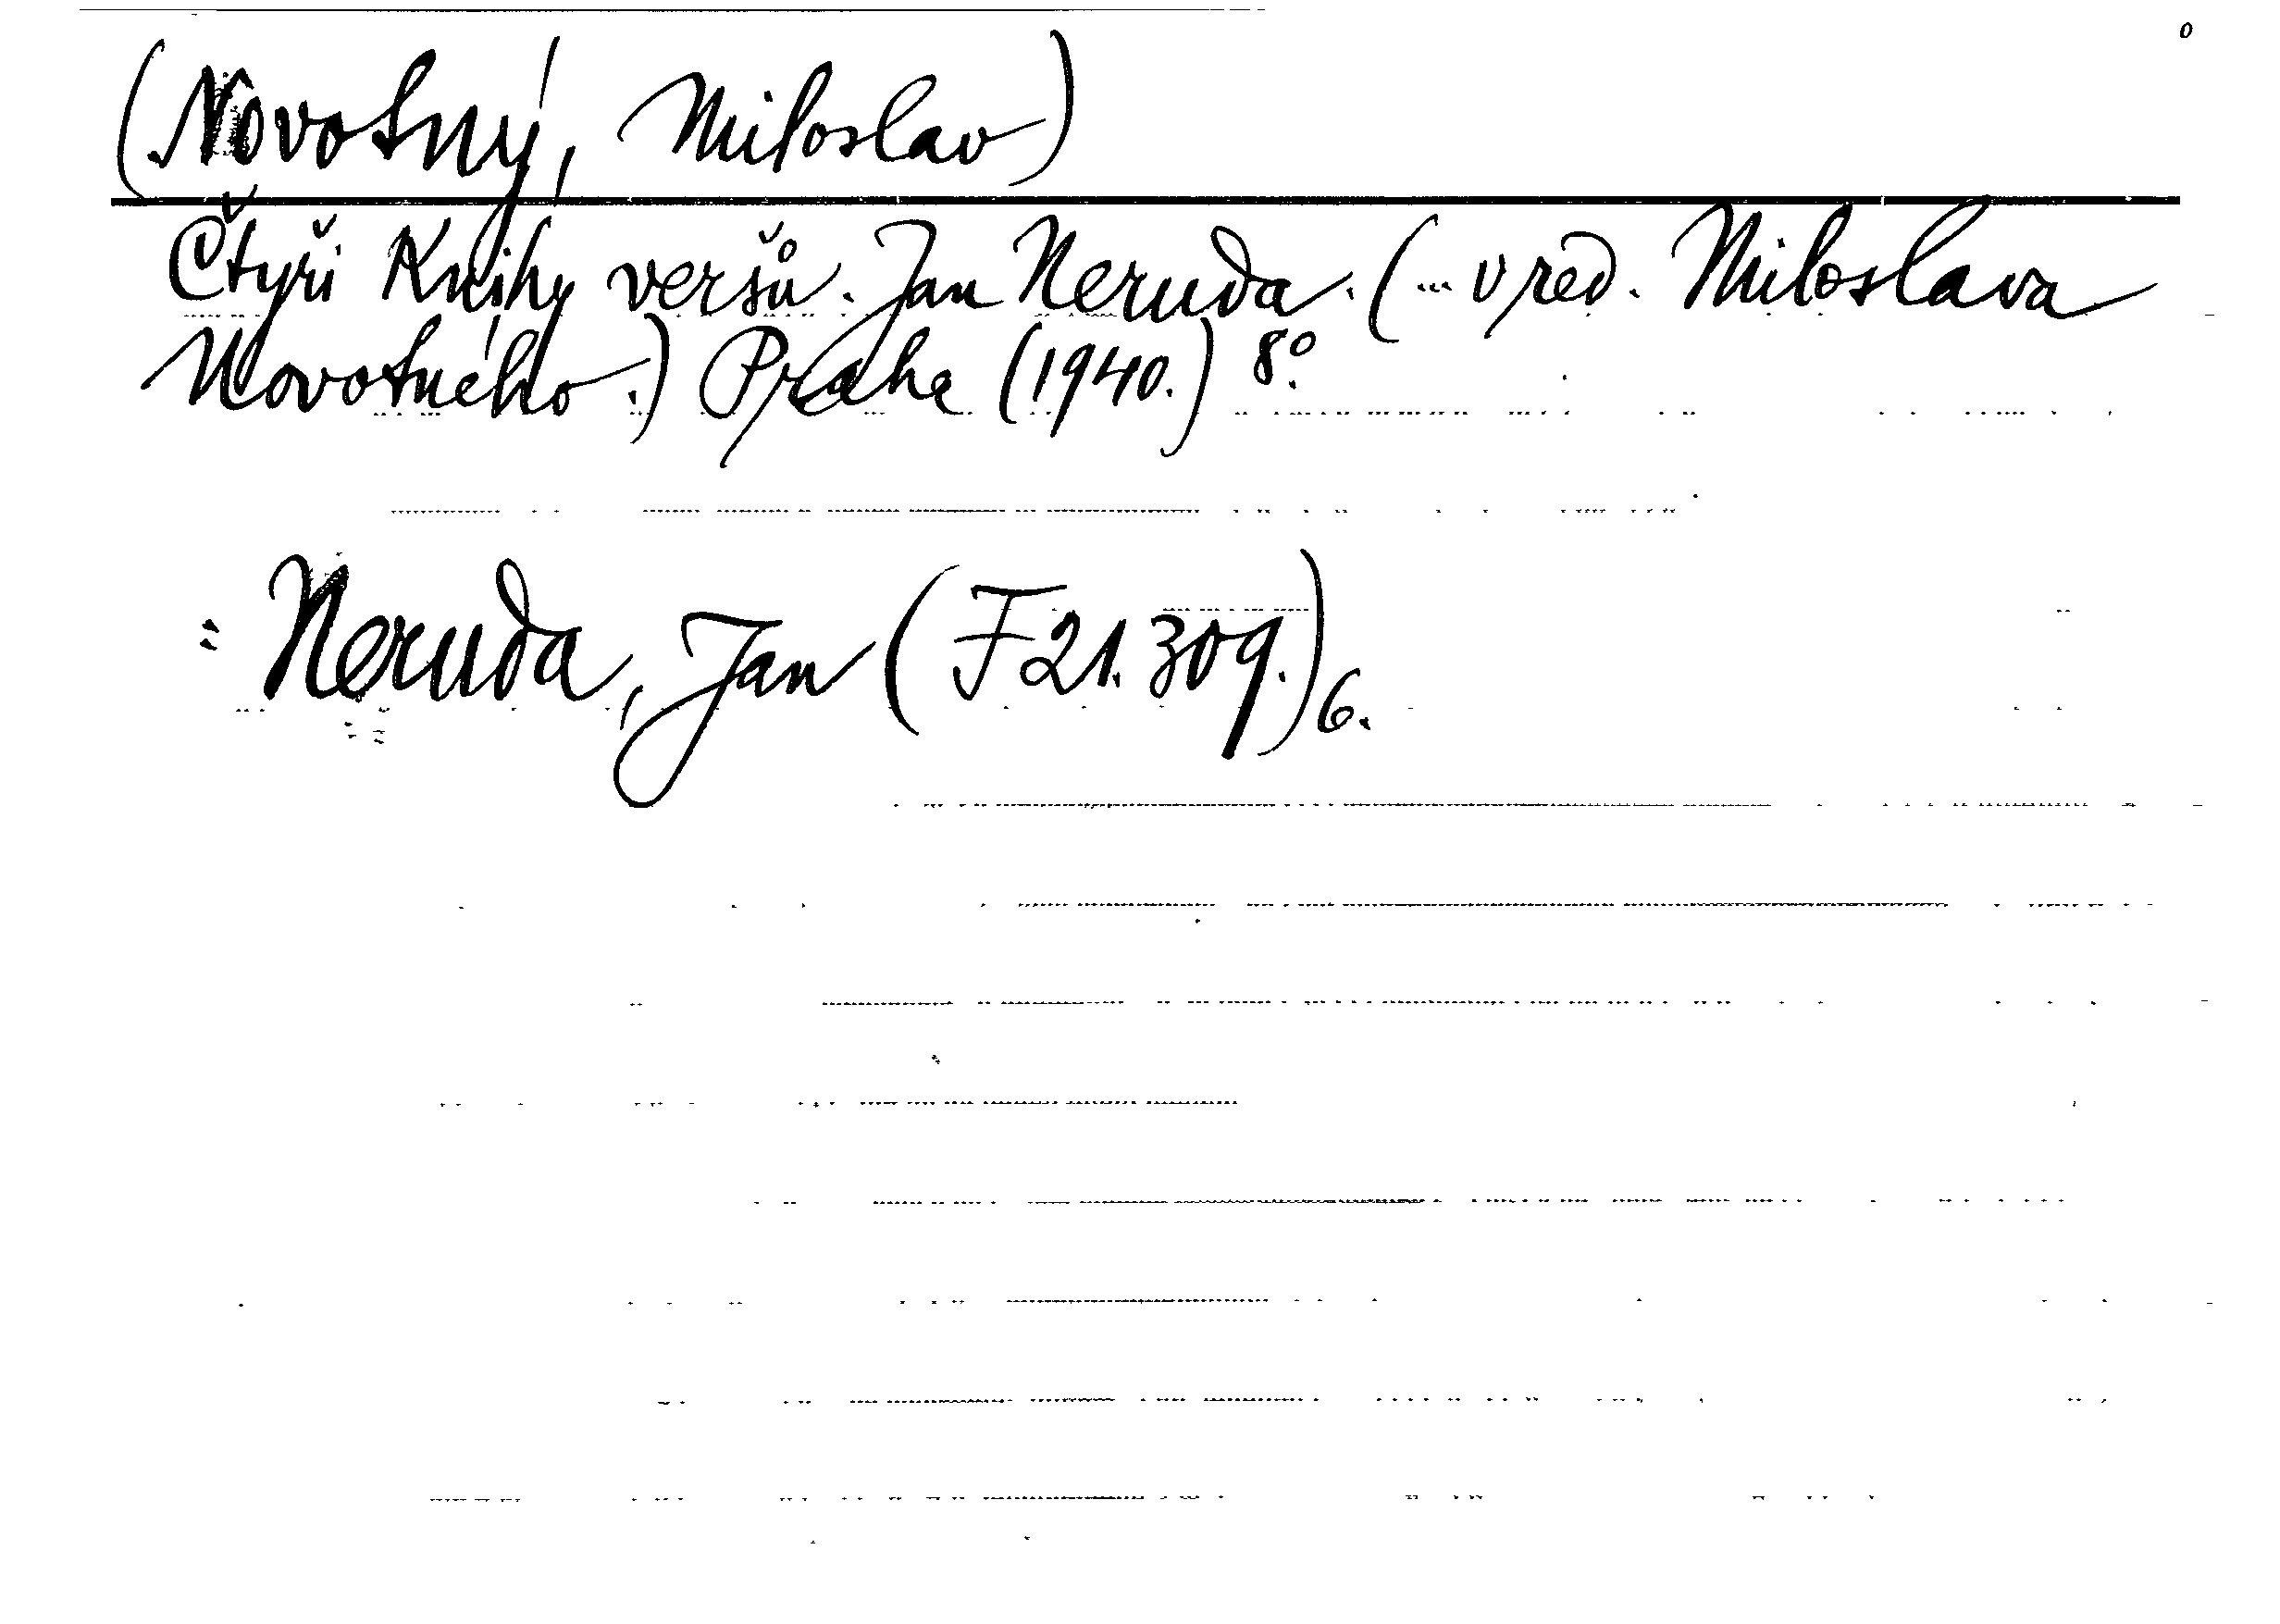 (Novotný, Miloslav)
Čtyři Knihy veršů. Jan Neruda. (... v red. Miloslava
Novotného.) Praha (1940.) 8°.
= Neruda, Jan (F 21.309.) 6.